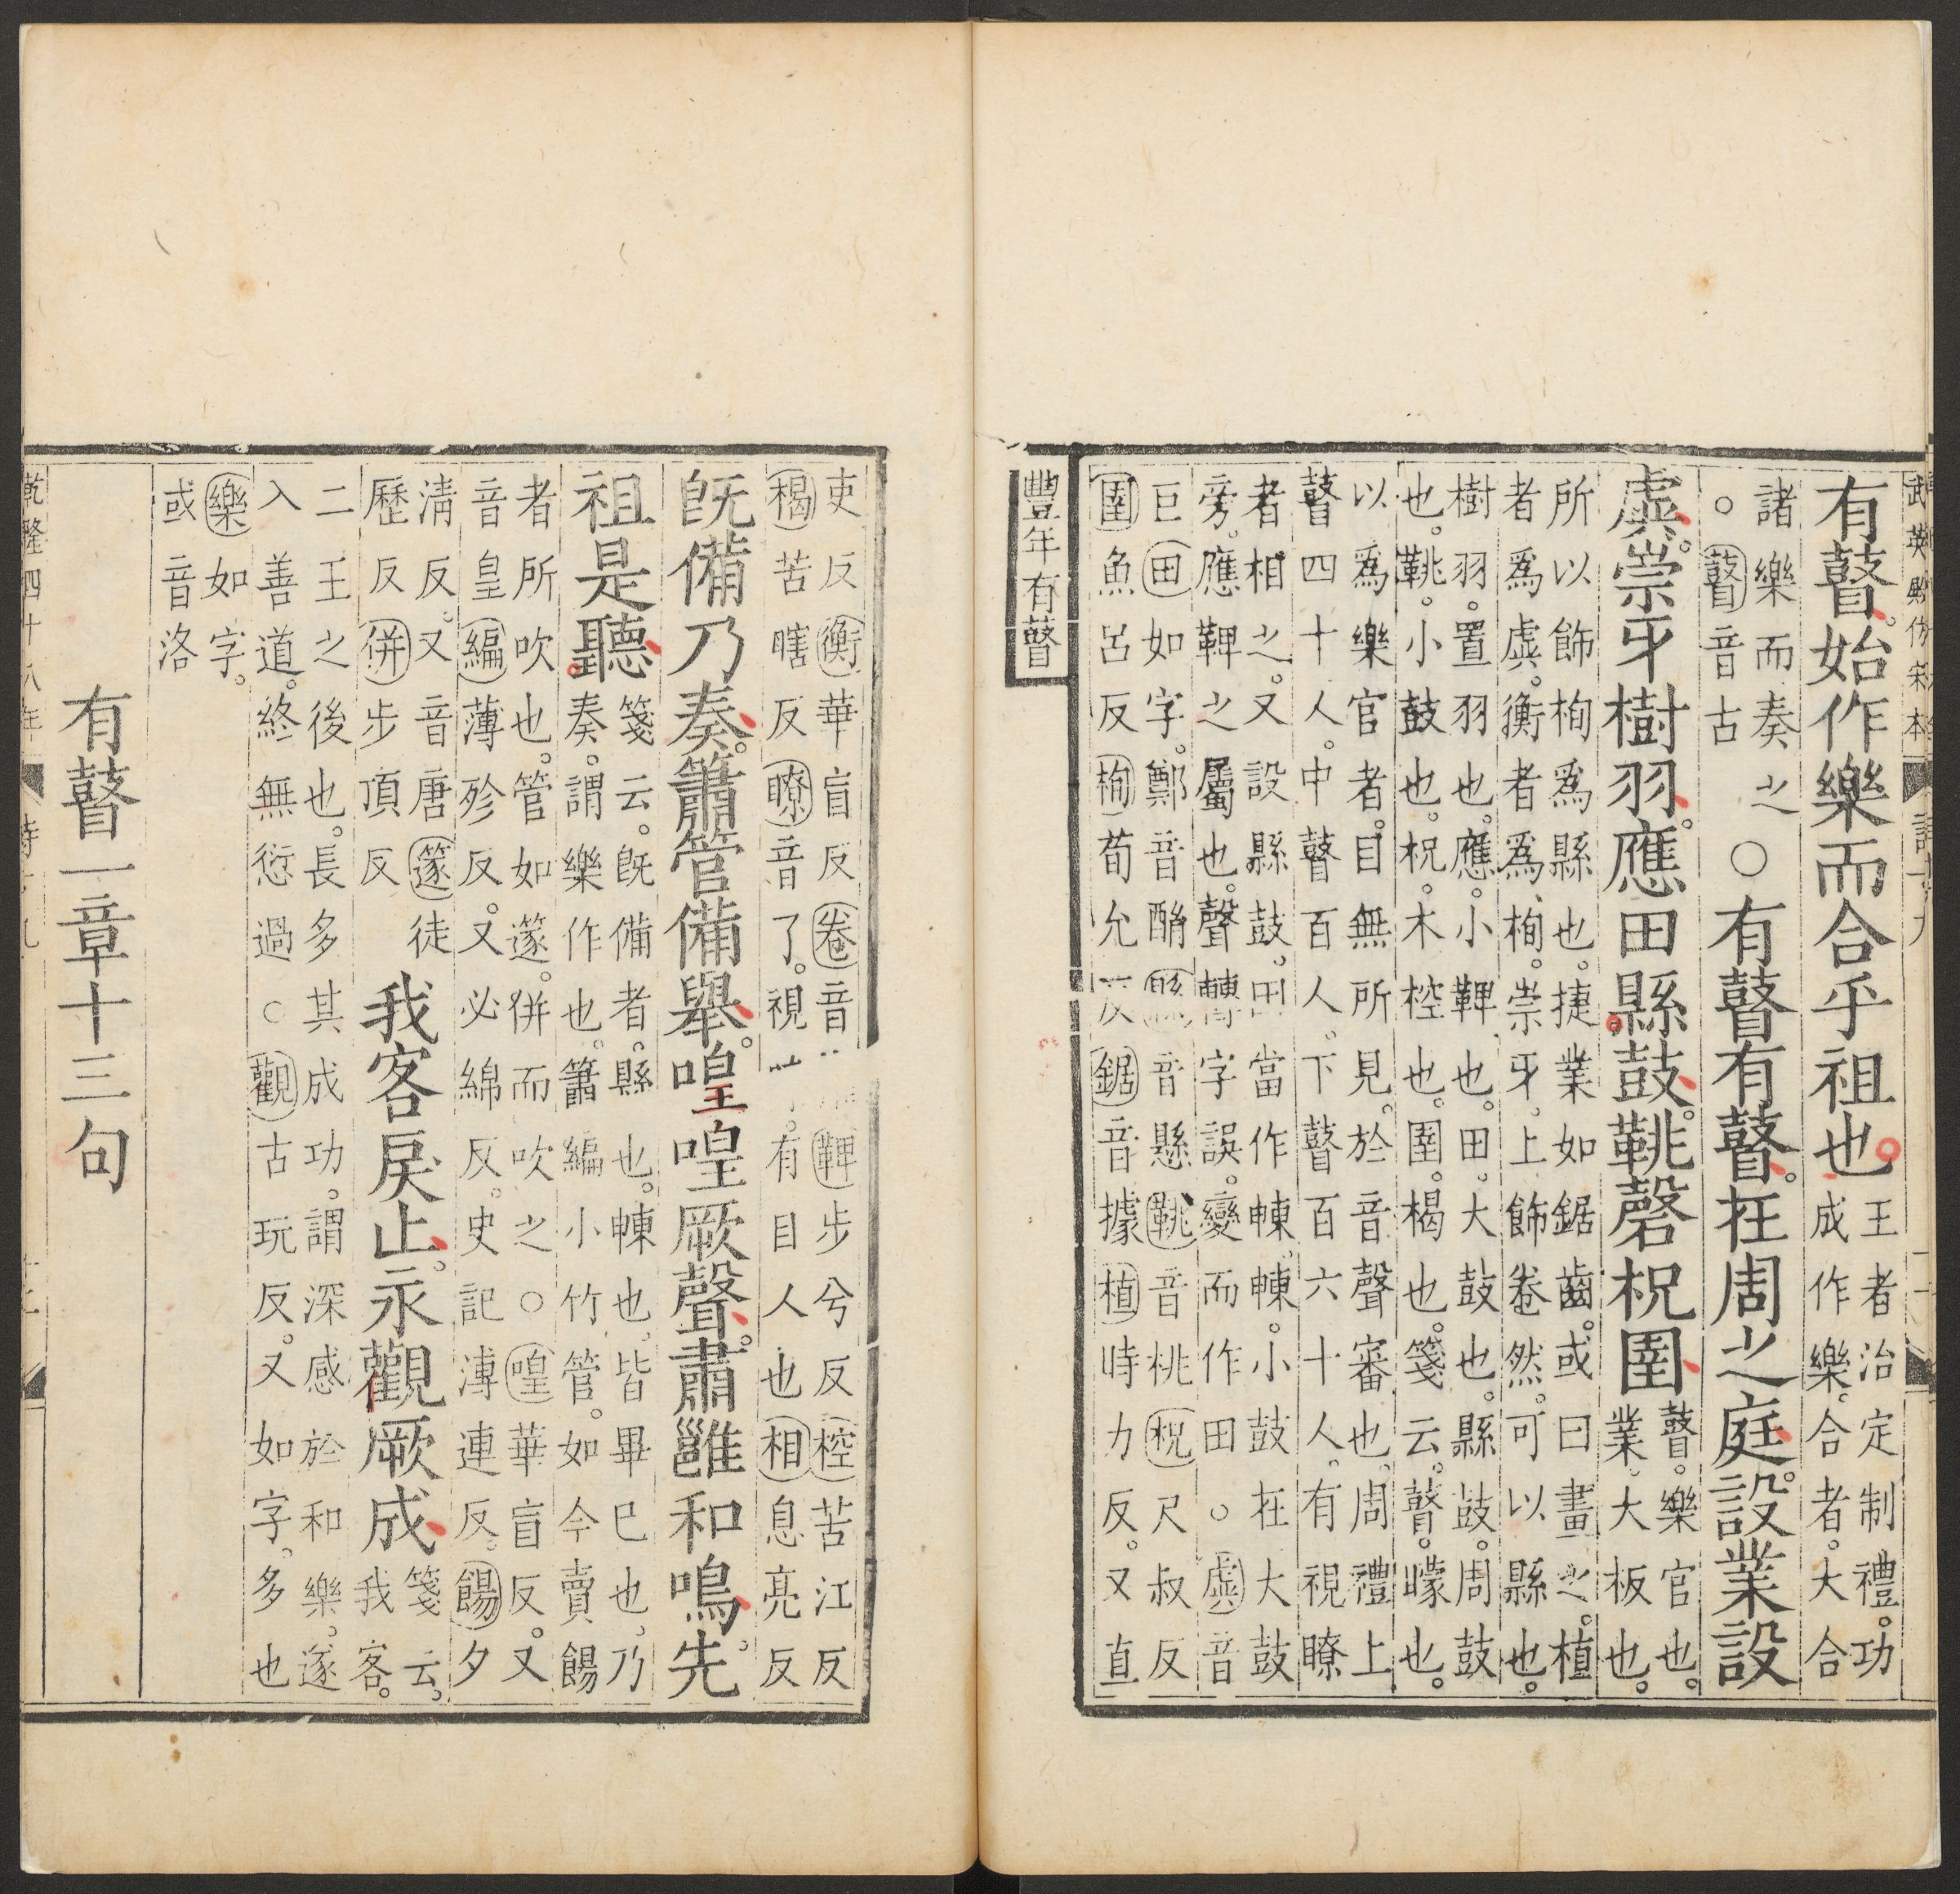 武英殿仿宋本
有瞽。始作樂而合乎祖也。
王者治定制禮。功
成作樂。合者。大合
諸樂而奏之
○瞽音古
○有瞽有瞽。在周之庭。設業設
虡。崇牙樹羽。應田縣鼓。鞉磬柷圉。
瞽。樂官也。
業。大板也。
所以飾栒爲縣也。捷業如鋸齒。或曰畫之。植
者爲虡。衡者爲栒。崇牙。上飾卷然。可以縣也。
樹羽。置羽也。應。小鞞也。田。大鼓也。縣鼓。周鼓
也。鞉。小鼓也。柷。木椌也。圉。楬也。箋云。瞽。矇也。
以爲樂官者。目無所見。於音聲審也。周禮上
瞽四十人。中瞽百人。下瞽百六十人。有視瞭
者相之。又設縣鼓。田當作朄。朄。小鼓在大鼓
旁。應鞞之屬也。聲轉字誤。變而作田。○虡音
巨田如字。鄭音酳縣音懸鞉音桃柷尺叔反
圉魚呂反栒荀允反鋸音據植時力反。又直
豐年有瞽
吏反衡華盲反卷音鞞步兮反椌苦江反
楬苦瞎反瞭音了。視有目人也相息亮反
旣備乃奏。簫管備舉。喤喤厥聲。肅雝和鳴。先
祖是聽。
箋云。旣備者。縣也。朄也。皆畢已也。乃
奏。謂樂作也。簫。編小竹管。如今賣餳
者所吹也。管如篴。併而吹之。○喤華盲反。又
音皇編薄殄反。又必綿反。史記溥連反。餳夕
淸反。又音唐篴徒
歷反併步頂反
我客戾止。永觀厥成。
箋云。
我客。
二王之後也。長多其成功。謂深感於和樂。遂
入善道。終無愆過。○觀古玩反。又如字。多也
樂如字。
或音洛
有瞽一章十三句
乾隆四十八年